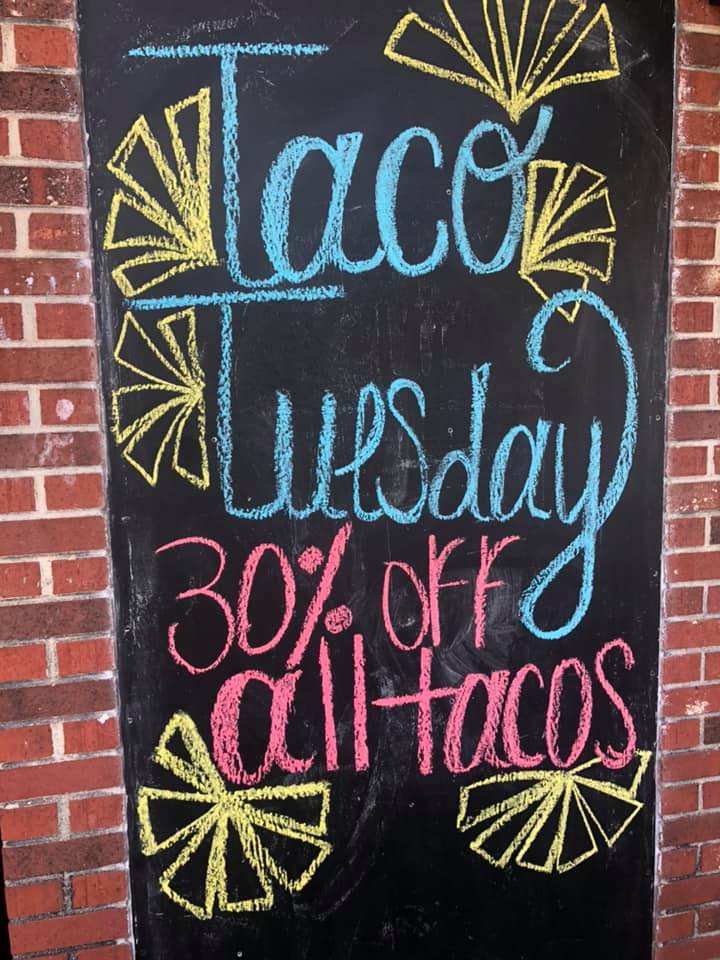 Taco
Tuesday
30% OFF
all tacos